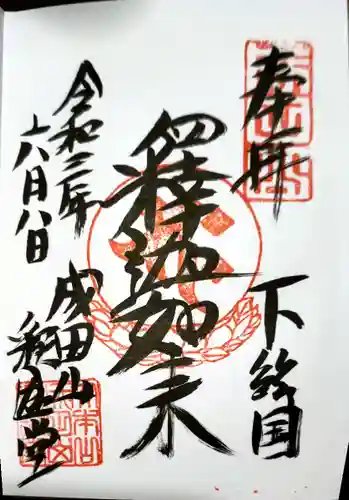 奉拝
下総国
釋迦如来
成田山
釈迦堂
令和二年
六月八日